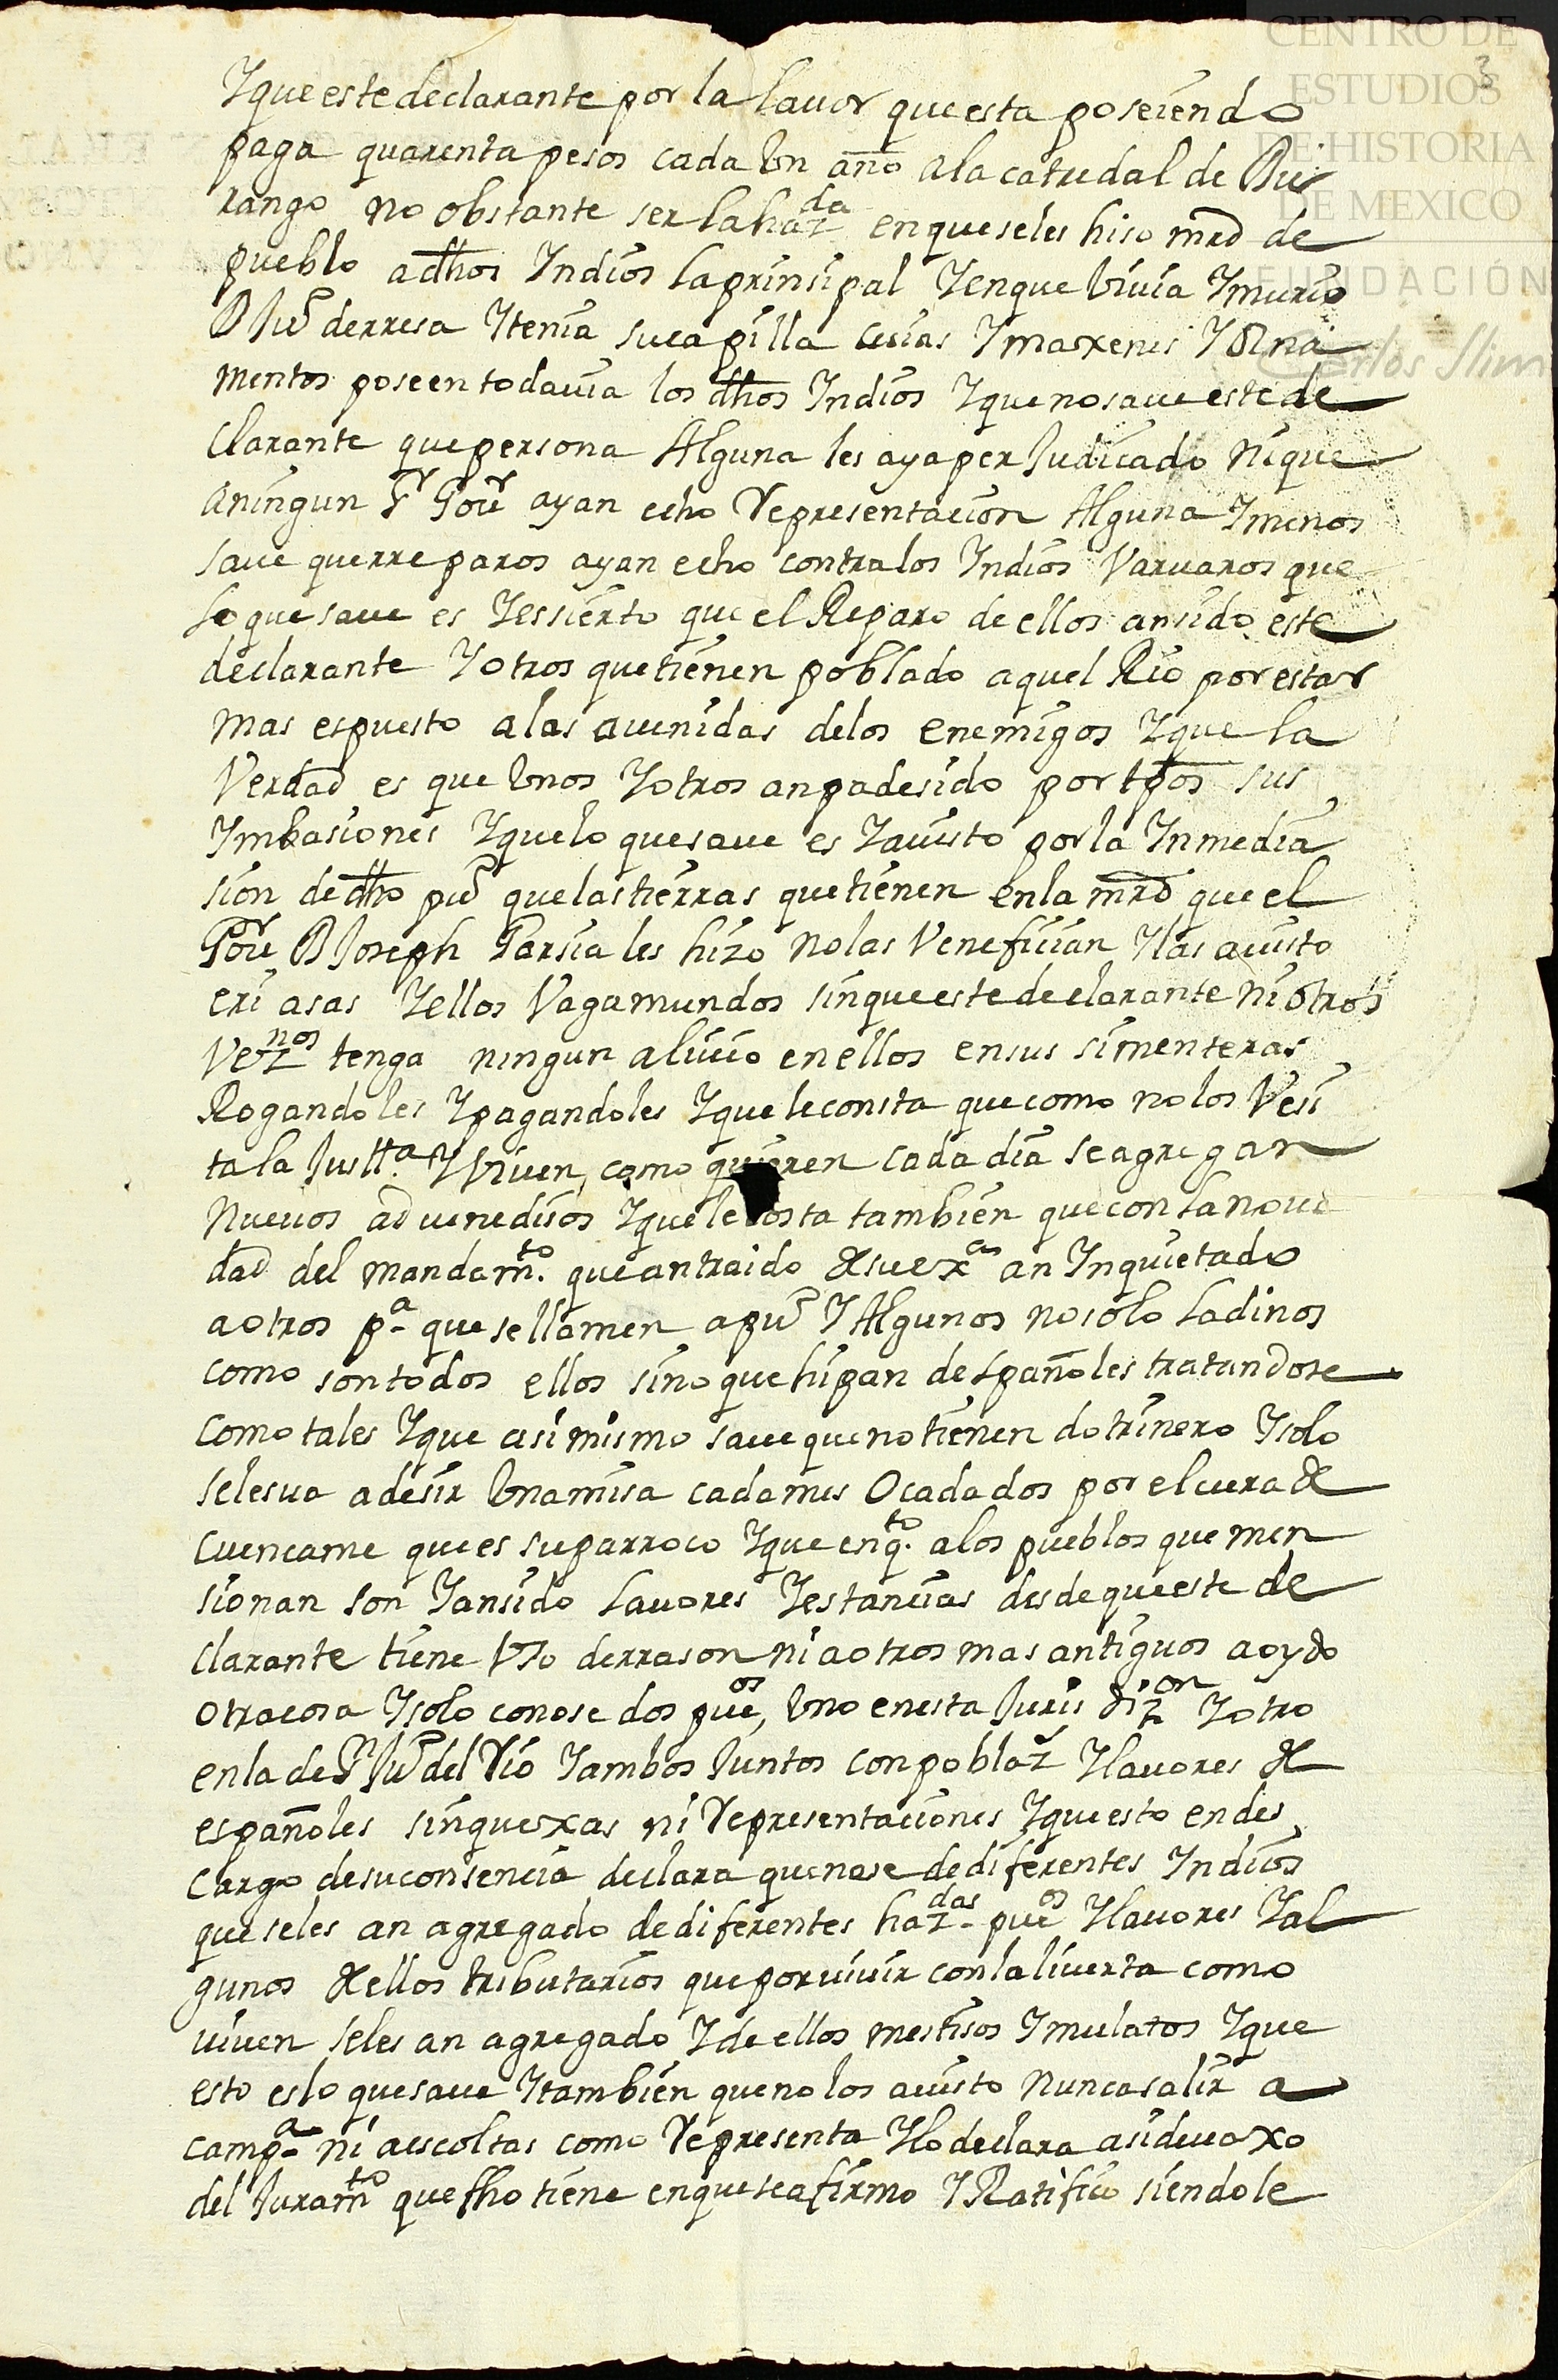 CENTRO DE
ESTUDIOS
DE HISTORIA
DE MEXICO
FUNDACIÓN
Carlos Slim
3
Y que este declarante por la lavor que esta poseiendo
paga quarenta pesos cada Un año ala catredal de Du
rango no obstante ser la haz.da en que se les hiso mrd de
pueblo a dhos Indios la prinsipal Y en que Vivia Y murio
D Ju.o de rresa Y tenia su capilla cuias Ymaxenes Y Orna
mentos poseen todavia los dhos Indios Y que no save este de
clarante que persona Alguna les aya per Judicado Ni que
a ningun S.r Gov.r ayan echo Representacion Alguna Y menos
save que rreparos ayan echo contra los Indios Varvaros que
lo que save es Y es sierto que el Reparo de ellos an sido este
declarante Y otros que tienen poblado aquel Rio por estar
mas espuesto a las avenidas de los enemigos Y que la
Verdad es que Unos Y otros an padesido por tpos sus
Ymbasiones Y que lo que save es Y a visto por la Inmedia
sion de dho pu.o que las tierras que tienen en la mrd que el
Gov.r D Joseph Garsia les hizo no las Venefician Y las a visto
eriasas Y ellos Vagamundos sin que este declarante ni otros
Vez.nos tenga ningun alivio en ellos en sus simenteras
Rogandoles Y pagandoles Y que le consta que como no los Vesi
ta la Justt.a Y Viven, como quieren cada dia se agregan
Nuevos advenedisos Y que le costa tambien que con la nove
dad del mandam.to que an traido de su ex.a an Inquietado
a otros p.a que se llamen a pu.o Y Algunos no solo Ladinos
como son todos ellos sino que hipan de españoles tratandose
como tales Y que asi mismo save que no tienen dotrinero Y solo
se les va a desir Una misa cada mes O cada dos por el cura de
cuencame que es su parroco Y que en q.to a los pueblos que men
sionan son Y an sido Lavores Y estancias desde que este de
clarante tiene Uso de rrason ni a otros mas antiguos a oydo
otra cosa Y solo conose dos pue.os, Uno en esta Juris diz.on Y otro
en la de S.n Ju.o del Rio Y ambos Juntos con poblaz.n Y lavores de
españoles sin quexas ni Representaciones Y que esto en des
cargo de su consencia declara que nase de diferentes Indios
que se les an agregado de diferentes haz.das pue.os Y lavores Y al
gunos de ellos tributarios que por vivir con la liverta como
viven se les an agregado Y de ellos mestisos Y mulatos Y que
esto es lo que save Y tambien que no los a visto Nunca salir a
camp.a ni a escoltas como Representa Y lo declara asi devaxo
del Juram.to que fho tiene en que se afirmo Y Ratifico siendole